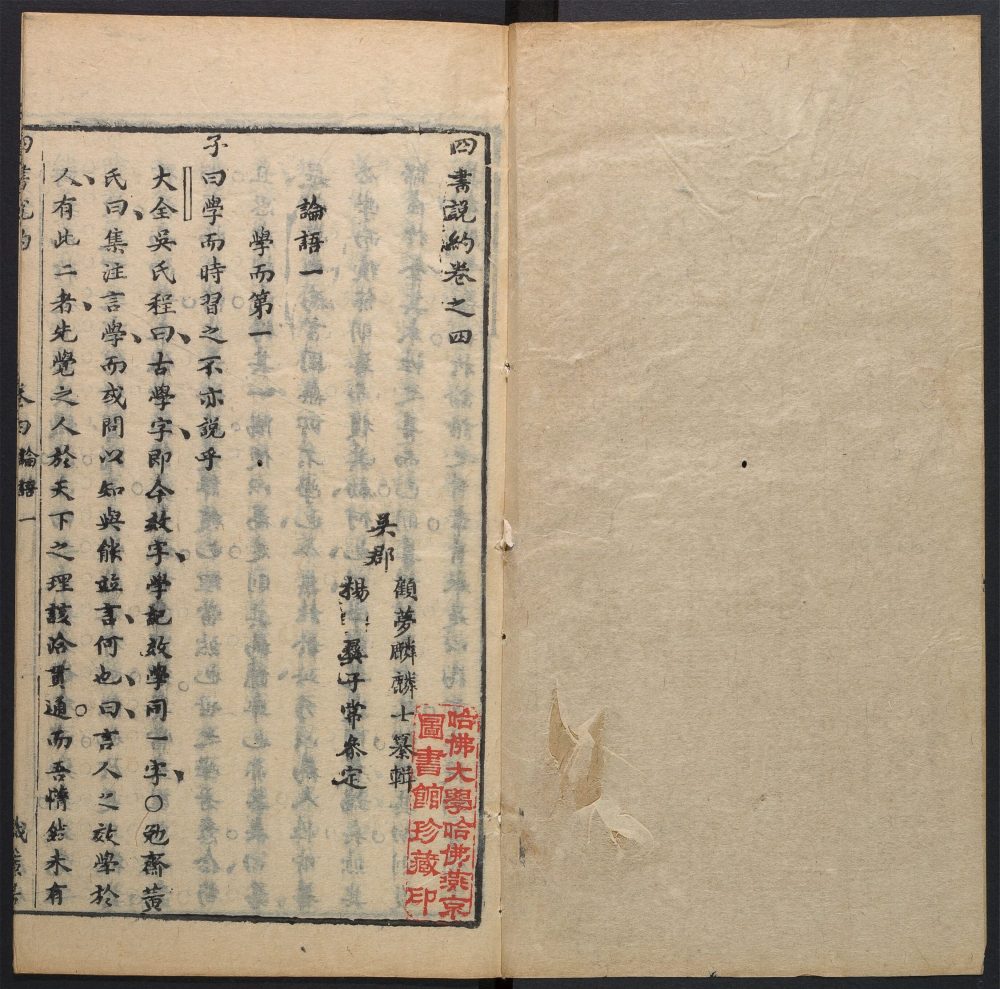 四書說約卷之四
吳郡
顧夢麟麟士纂輯
楊彞子常參定
論語一
學而第一
子曰學而時習之不亦說乎
大全吳氏程曰古學字即今效字學記效學同一字○勉齋黃
氏曰集注言學而或問以知與能並言何也曰言人之效學於
人有此二者先覺之人於天下之理該洽貫通而吾懵然未有
四書說約
卷四論語一
哈佛大學哈佛燕京
圖書館珍藏印